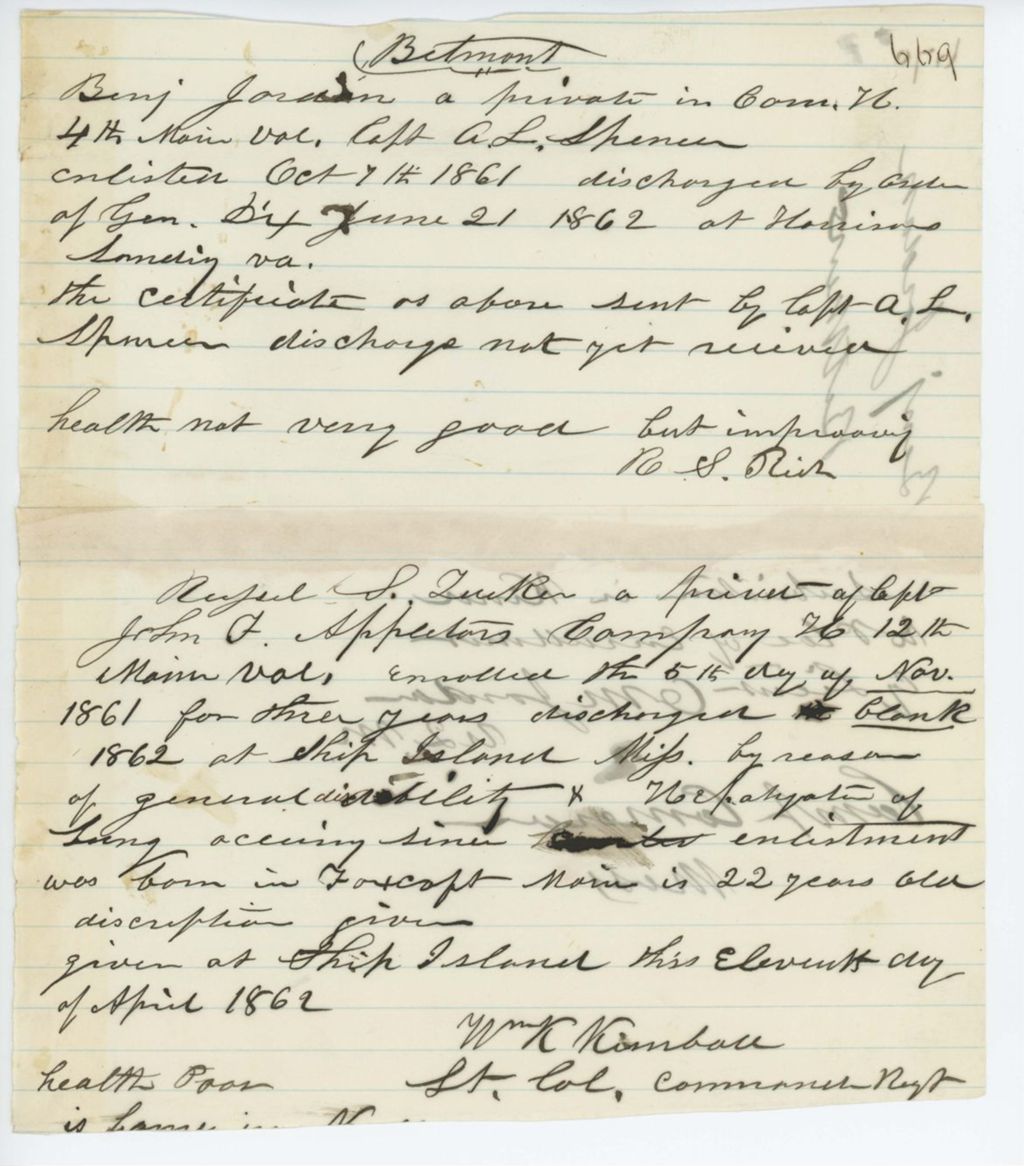 Belmont
669
Benj Jordan a private in Com. H.
4th Main Vol. Capt A. L. Spencer
enlisted Oct 7th 1861 discharged by order
of Gen. Dix June 21 1862 at Harrisons
Landig va.
the certificate as above sent by Capt A. L.
Spencer discharge not yet recieved
health not very good but improovig
R. S. Rich
S. Tucker a privet of Capt
John F. Appletons Company H 12th
Main Vol. Enrolled the 5th day of Nov.
1861 for three years discharged blank
1862 at Ship Island Miss. by reason
of general debility & of
Lung accuring since enlistment
was born in Foxcroft Main is 22 years old
discription given
given at Ship Island this Eleventh day
of April 1862
Wm K Kimball
health Poor Lt. Col. Commander Regt
is